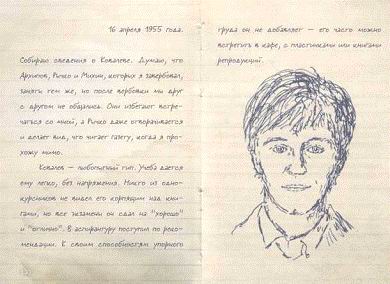 16 апреля 1955 года.
Собираю сведения о Ковалеве. Думаю, что
Архипов, Ричко и Михин, которых я завербовал,
заняты тем же, но после вербовки мы друг
с другом не общались. Они избегают встре-
чаться со мной, а Ричко даже отворачивается
и делает вид, что читает газету, когда я про-
хожу мимо.
Ковалев — любопытный тип. Учеба дается
ему легко, без напряжения. Никто из одно-
курсников не видел его корпящим над кни-
гами, но все экзамены он сдал на "хорошо"
и "отлично". В аспирантуру поступил по реко-
мендации. К своим способностям упорного
труда он не добавляет — его часто можно
встретить в кафе, с пластинками или книгами
репродукций.